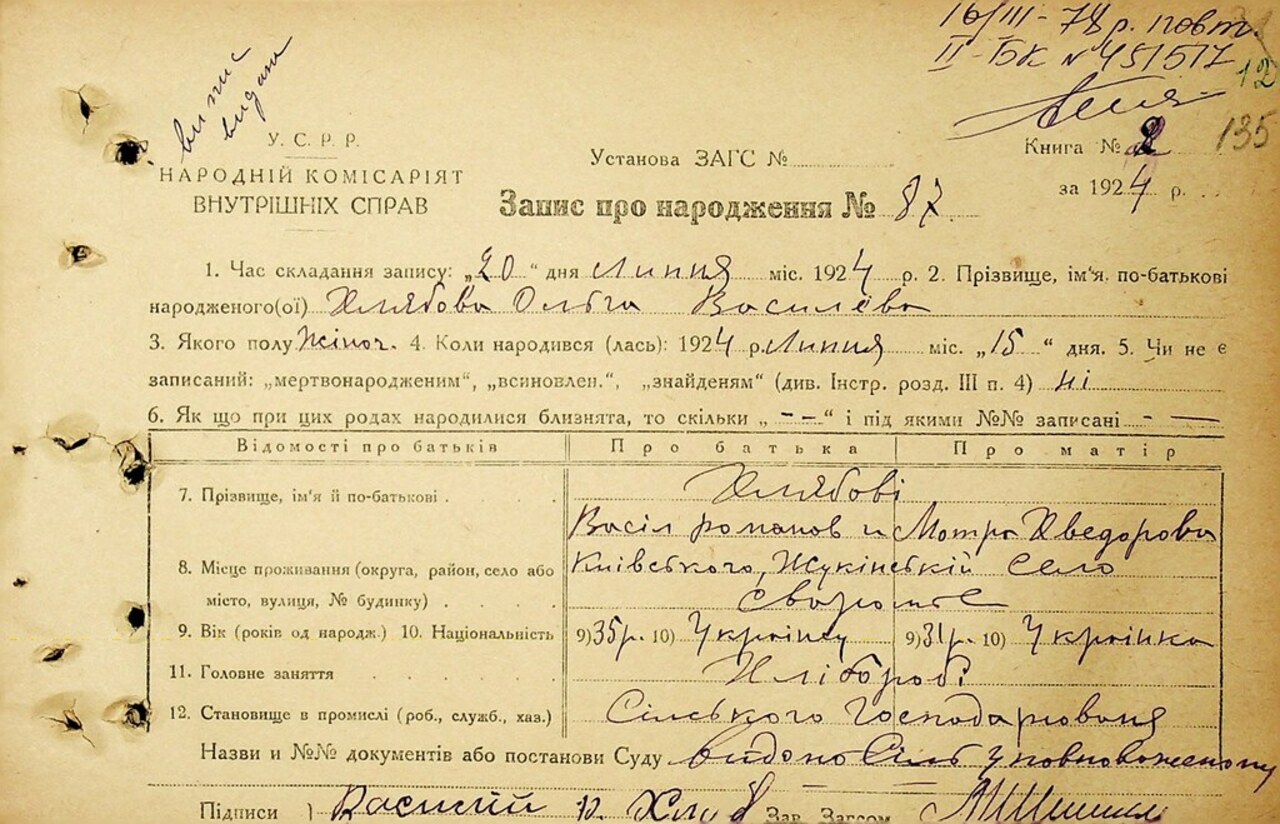 16/III-78 р. повт.
II-БК № 451517
12
випис
видана
135
У. С. Р. Р.
НАРОДНІЙ КОМІСАРІЯТ
ВНУТРІШНІХ СПРАВ
Установа ЗАГС №
Книга № 2
за 1924 р.
Запис про народження № 87
1. Час складання запису: „20“ дня Липня міс. 1924 р. 2. Прізвище, ім'я. по-батькові
народженого(ої) Хлябова Ольга Василева
3. Якого полу Жіноч. 4. Коли народився (лась): 1924 р. Липня міс. „15“ дня. 5. Чи не є
записаний: „мертвонародженим“, „всиновлен.“, „знайденям“ (див. Інстр. розд. III п. 4) ні
6. Як що при цих родах народилися близнята, то скільки „— —“ і під якими №№ записані — —
Відомості про батьків Про батька Про матір
7. Прізвище, ім'я й по-батькові Хлябові
Васіл романов и Мотра Хведорова
8. Місце проживання (округа, район, село або Київського, Жукінській Село
місто, вулиця, № будинку) Сваромьє
9. Вік (років од народж.) 10. Національність 9) 35р. 10) Українец 9) 31р. 10) Українка
11. Головне заняття Хлібороbі
12. Становище в промислі (роб., служб., хаз.) Сільського Господарювання
Назви и №№ документів або постанови Суду видано Сіль Уповноваженому
Підписи Василий Р. Хляб Зав. Загсом